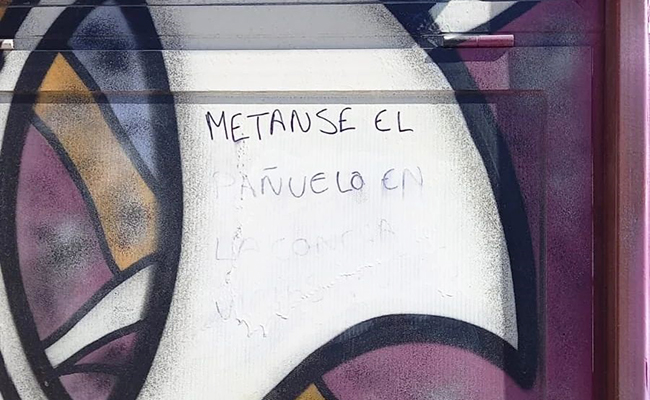 METANSE EL
PAÑUELO EN
LA CONCHA